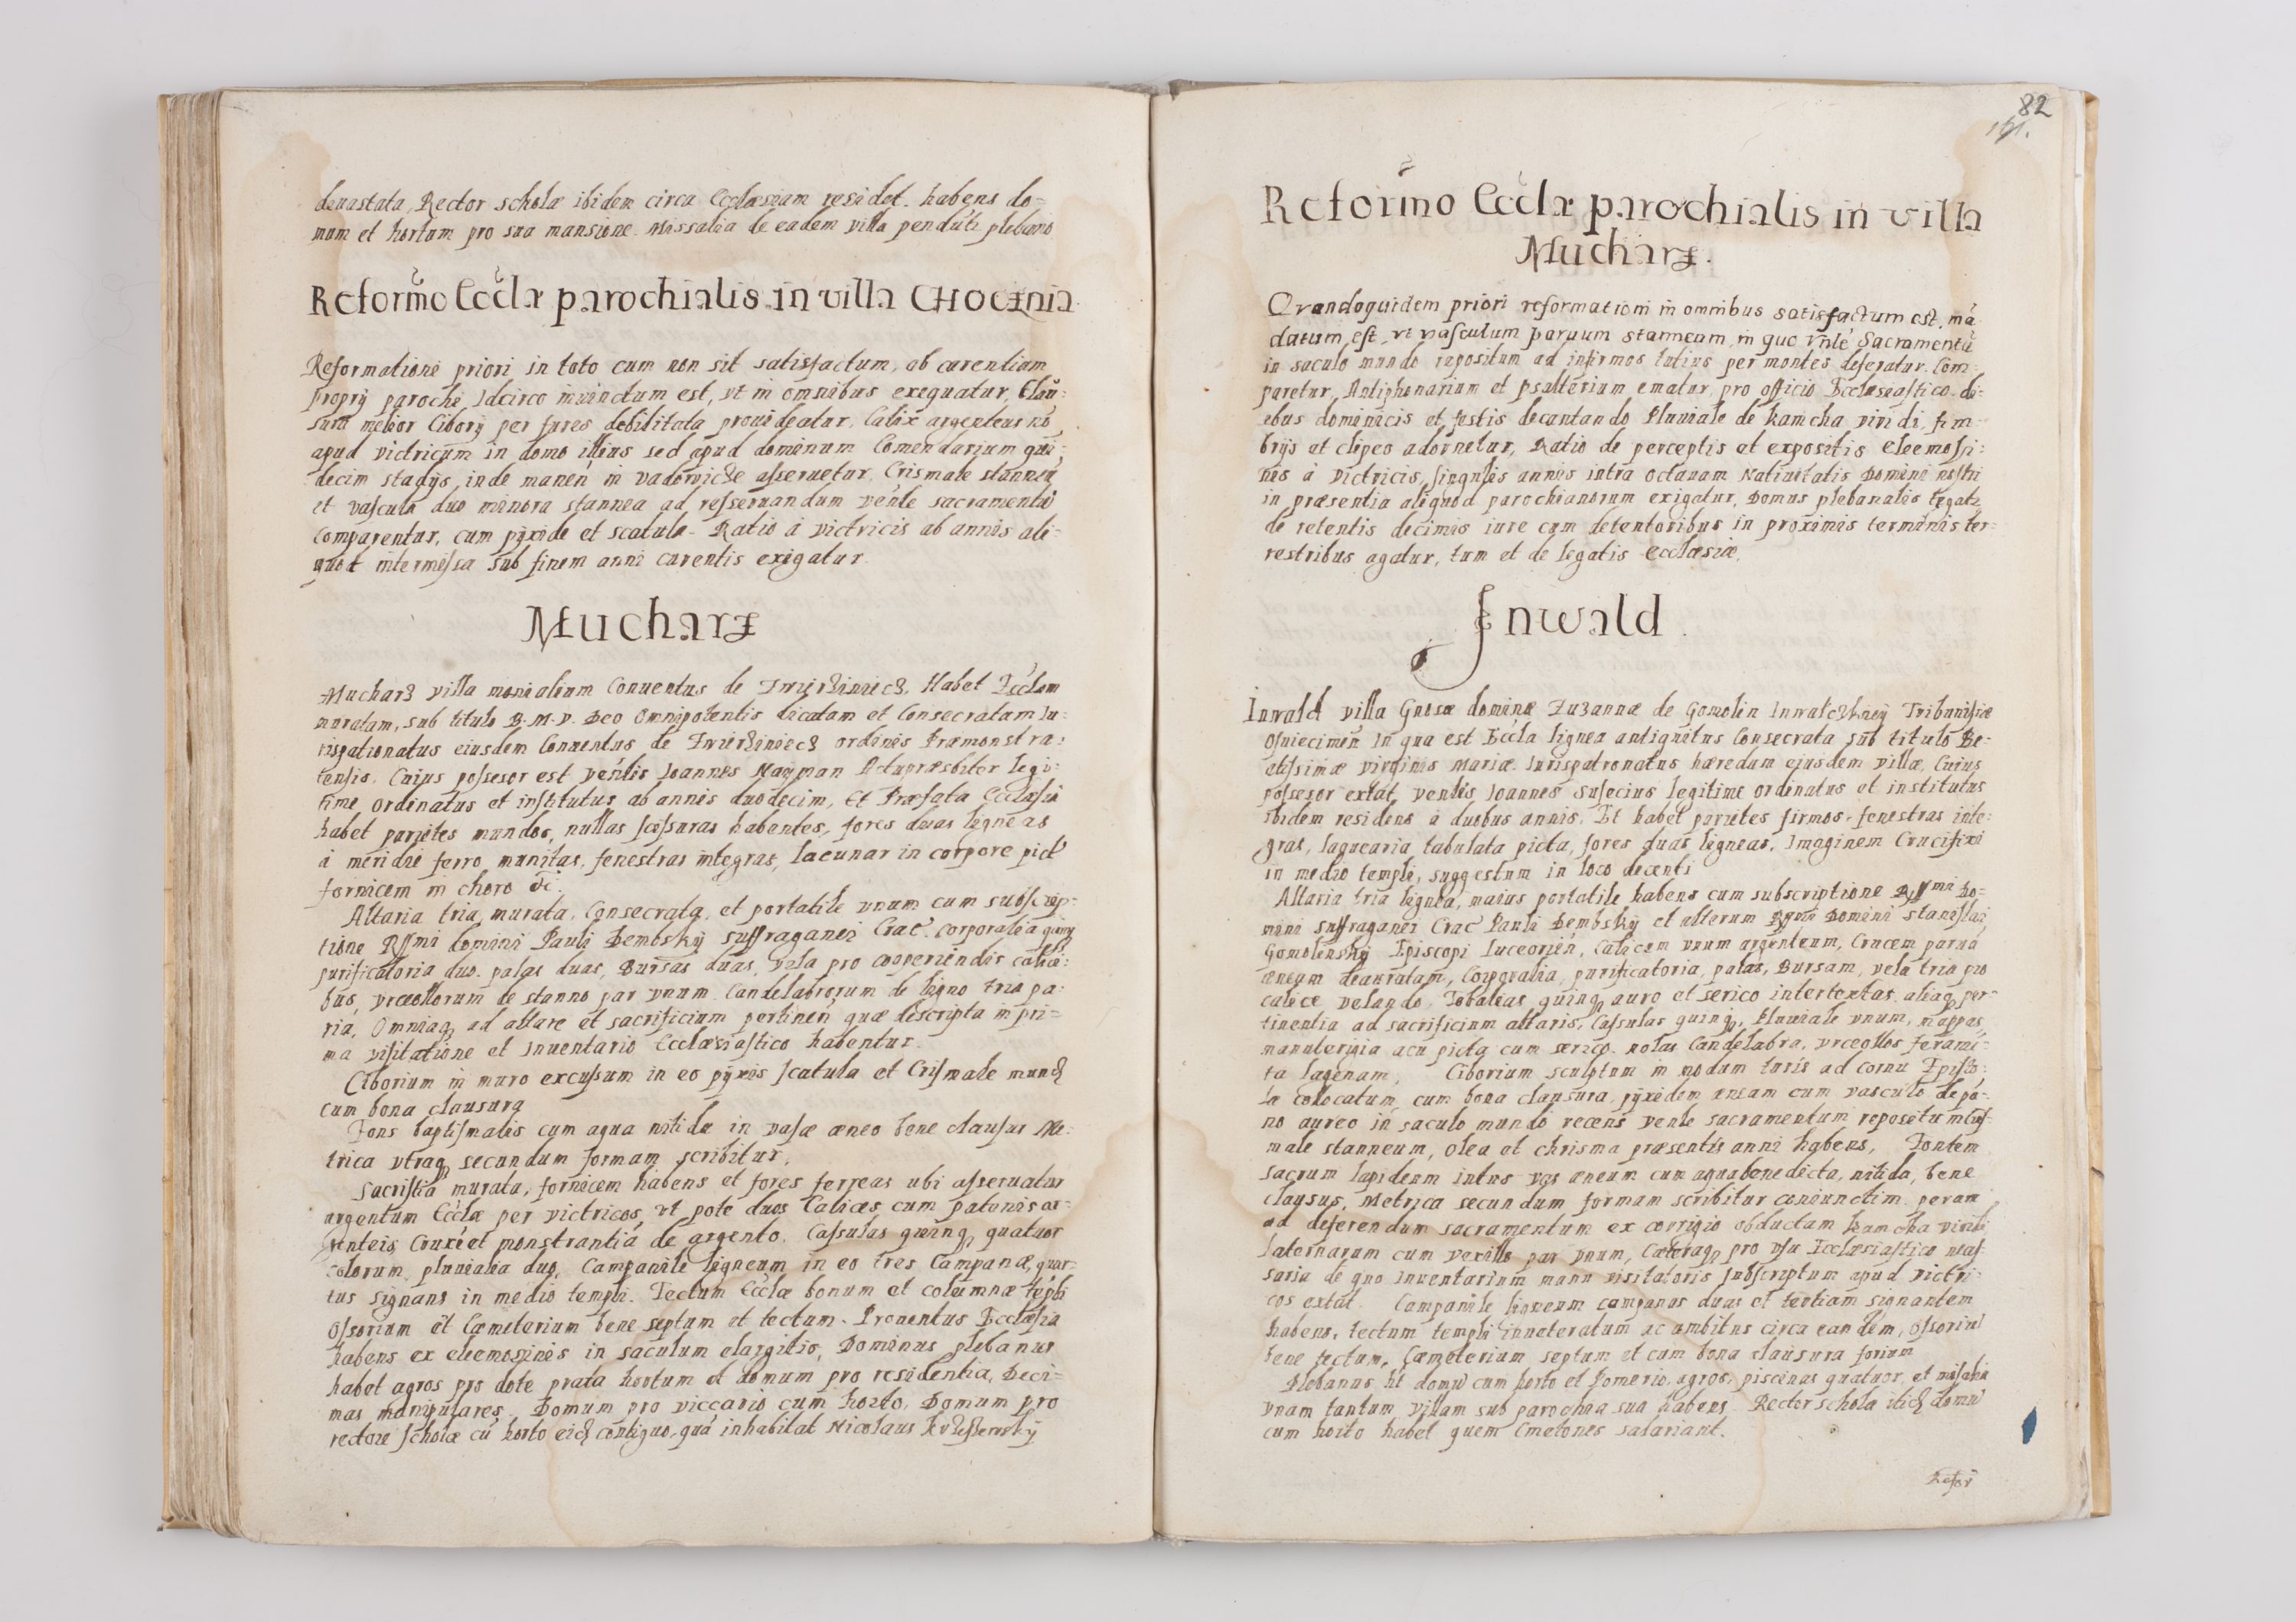 deuastata, Rector scholæ ibidem circa Ecclæsiam residet. habens do-
mum et hortum pro sua mansione. Missalia de eadem villa pendūt plebano
Reformo Eccłæ parochialis in villa CHOCZnia.
Reformationi priori in toto cum non sit satisfactum, ob carentiam
proprij parochi Idcirco iniunctum est, vt in omnibus exequatur, Clau-
sura melior Ciborij per fures debilitata prouideatur. Calix argenteus nō
apud victricum in domo illius sed apud dominum Comendarium qui-
decim stadijs inde manen̄ in Vadowicze asseruetur. Crismale stanneū
et vascula duo minora stannea ad resseruandum venle sacramentū
Comparentur, cum pyxide et scatula. Ratio à victricis ab annis ali-
quot intermissa sub finem anni curentis exigatur.
Mucharz
Mucharz villa monialium Conuentus de Zwierziniecz. Habet Eccłam
muratam, sub titulo B. M. V. Deo Omnipotentis dicatam et Consecratam Iu-
rispationatus eiusdem Conuentus de Zwierziniecz ordinis Præmonstra-
tensis. Cuius possesor est Venlis Joannes Nayman Actupræsbiter legi-
time ordinatus et institutus ab annis duodecim, Et Præfata Ecclæsia
habet parietes mundos, nullas scissuras habentes, fores duas ligneas
à meridie ferro munitas, fenestras integras, lacunar in corpore pict
fornicem in choro &c.
Altaria tria murata, Consecrata, et portatile vnum cum subscrip-
tione Rssmi domini Pauli Dembskij suffraganei Crac̄. Corporalia quinq
purificatoria duo. palas duas, Bursas duas, vela pro cooperiendis calici-
bus, vrceollorum de stanno par vnum. Candelabrorum de ligno tria pa-
ria, Omniaq ad altare et sacrificium pertinen̄ quæ descripta in pri-
ma visitatione et Inuentario Ecclæsiastico habentur.
Ciborium in muro excussum in eo pyxis scatula et Crismale mund
cum bona clausura
Fons baptismalis cum aqua nitida in vase æneo bene clausus Me-
trica vtraq secundum formam scribitur.
Sacristia murata, fornicem habens et fores ferreas ubi asseruatur
argentum Eccłæ per victricos, vt pote duos Calices cum patenis ar-
genteis Cruxē et monstrantiā de argento. Cassulas quinq quatuor
colorum pluuialia duo, Campanile ligneum in eo tres Campanæ, quar-
tus signans in medio templi. Tectum Eccłæ bonum et columnæ tēpli
Ossorium et Cæmeterium bene septum et tectum. Prouentus Ecclæsia
habens ex eleemosinis in saculum elargitis, Dominus plebanus
habet agros pro dote prata hortum et domum pro residentia, Deci-
mas manipulares. Domum pro viccario cum horto, Domum pro
rectore scholæ cū horto eid contiguo, quā inhabitat Nicolaus
82
161.
Reformo Eccłæ parochialis in villa
Mucharz.
Qvandoquidem priori reformationi in omnibus satisfactum est, mā
datum est, vt vasculum paruum stanneam in quo vnle Sacramentū
in saculo mundo repositum ad infirmos tutius per montes deferatur. Com-
paretur, Antiphonarium et psalterium ematur, pro officio Ecclæseastico di-
ebus dominicis et festis decantando. Pluuiale de kamcha viridi, fim-
brijs et clipeo adornetur, Ratio de perceptis et expositis eleemosi-
nis à victricis, singulis annis intra octauam Natiuitatis Domini nostri
in præsentia aliquod parochianorum exigatur, Domus plebanalis tegatz
de retentis decimis iure cum detentoribus in proximis terminis ter-
restribus agatur, tum et de legatis ecclæsiæ.
Inwald.
Inwald villa Gnosæ dominæ Zuzannæ de Gomolin Inwalczkney Tribunissæ
Osuiecimen̄ In qua est Eccła lignea antiquitus Consecrata sub titulo Be-
atissimæ virginis Mariæ. Iurispatronatus hæredum ejusdem villæ, Cuius
possesor extat Venlis Joannes Susecius legitime ordinatus et institutus
ibidem residens à duobus annis. Et habet parietes firmos, fenestras inte-
gras, laquearia tabulata picta, fores duas ligneas. Imaginem Crucifixi
in medio templi, suggestum in loco decenti
Altaria tria lignea, maius portatile habens cum subscriptione Rssmi Do-
mini suffraganei Crac̄ Pauli Dembskij et alterum Rssmi Domini Stanislai
Gomolinskij Episcopi luceorien̄, Calicem vnum argenteum, Crucem paruā
æneam deauratam, Corporalia, purificatoria, palas, Bursam, vela tria pro
calice velando. Tobaleas quinq auro et serico intertextas aliaq per-
tinentia ad sacrificium altaris, Cassulas quinq, Pluuiale vnum, mappas,
manutergia acu picta cum serico. nolas Candelabra, vrceollos ferami-
ta lagenam, Ciborium sculptum in modum turis ad cornu Episto-
læ colocatum, cum bona clausura, pyxidem æneam cum vasculo de pā-
no aureo in saculo mundo recens venle sacramentum repositum Cris-
male stanneum, Olea et chrisma præsentis anni habens, Fontem
sacrum lapideum intus vas æneum cum aqua benedicta, nitida, bene
clausus, Metrica secundum formam scribitur coniunctim. peram
ad deferendum sacramentum ex corrigio obductam kamcha viridi
laternarum cum vexillo par vnum, Cæteraq pro vsu Ecclæsiastico necess-
saria de quo Inuentarium manu visitatoris subscriptum apud victri-
cos extat. Campanile ligneum campanas duas et tertiam signantem
habens, tectum templi inueteratum ac ambitus circa eandem, Ossoriū
bene tectum, Cæmeterium septum et cum bona clausura forium
Plebanus ht domū cum horto et pomerio, agros, piscinas quatuor, et missalia
vnam tantum villam sub parochia sua habens. Rector scholæ itid domū
cum horto habet quem Cmetones salariant.
Refor